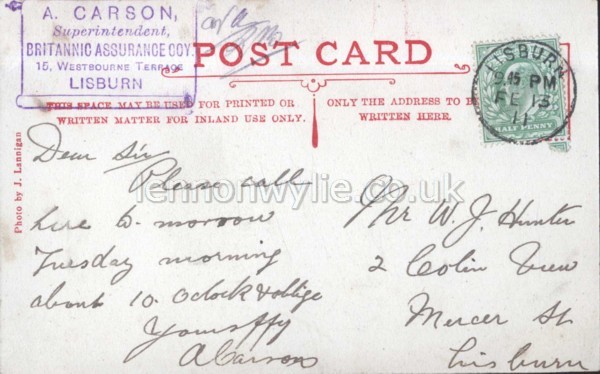 A. CARSON,
Superintendent,
BRITANNIC ASSURANCE COY.
15, WESTBOURNE TERRACE
LISBURN
POST CARD
THIS SPACE MAY BE USED FOR PRINTED OR
WRITTEN MATTER FOR INLAND USE ONLY.
ONLY THE ADDRESS TO BE
WRITTEN HERE.
LISBURN
45 PM
FE 13
11
HALF PENNY
Photo by J. Lannigan
lennonwylie.co.uk
Dear Sir
Please call
here to-morrow
Tuesday morning
about 10. Oclock & oblige
Yours ffy
A Carson
Mr W. J. Hunter
2 Colin View
Mercer St
Lisburn